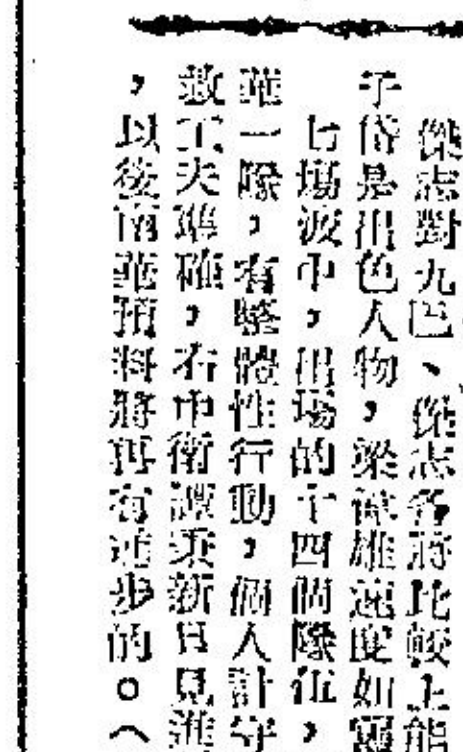 傑志對九巴、傑志各將比較上能
子岱是出色人物，梁偉雄速度如
七場波中，出場的十四個隊伍，
華一隊，有整體性行動，個人計守
救工夫準確，右中衛譚秉新日見進
，以後南華預料將再有進步的。（